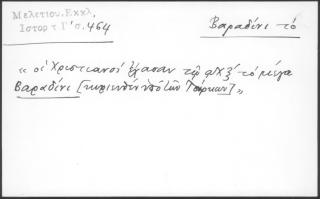 Μελετίου.Εκκλ,
Ιστορ τ Γ'σ.464
Βαραδίνι τό
« οἱ Χριστιανοί ἔχασαν τῷ αχξ' τό μέγα
Βαραδίνι [κυριευθέν ὑπό τῶν Τούρκων] »